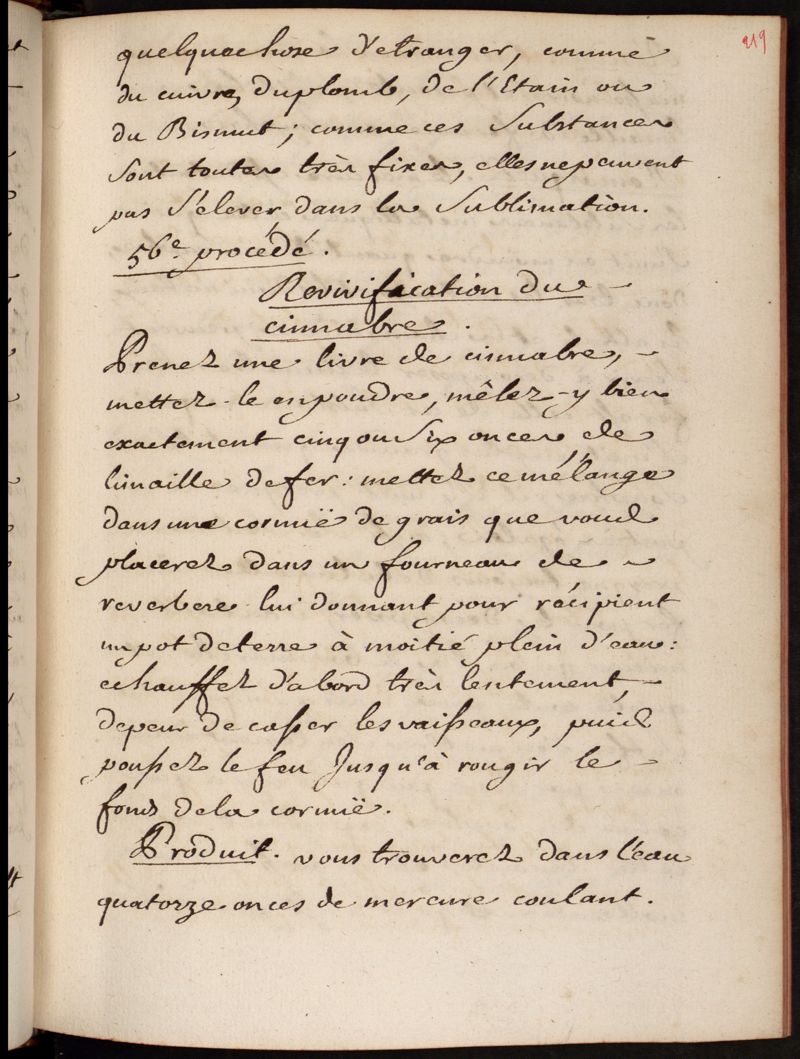 219
quelquechose d'etranger, comme
du cuivre, duplomb, de l'Etain ou
du Bismut; comme ces Substances
sont toutes très fixes, elles ne peuvent
pas s'élever dans la Sublimation.
56.e procédé.
Revivification du
cinnabre.
Prenez une livre de cinnabre,
mettez-le en poudre, mêlez-y bien
exactement cinq ou Six onces de
limaille de fer: mettez ce mélange
dans une cornuë de grais que vous
placerez dans un fourneau de
reverbere lui donnant pour récipient
un pot de terre à moitié plein d'eau:
echauffez d'abord très lentement,
de peur de casser les vaisseaux, puis
poussez le feu Jusqu'à rougir le
fond de la cornuë.
Produit. vous trouverez dans l'eau
quatorze onces de mercure coulant.